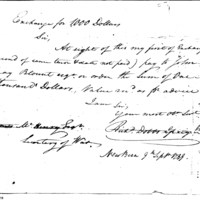 Exchange for 1000 Dollars
Sir,
At sight of this my first of Exchange
second of same tenor & date not paid) pay to John
Gray Blount esqr or order the sum of One
thousand Dollars, Value in as pr advice
I am Sir,
Your most Obt Servt
McHenry Esqr
Richd Dobbs Spaight
Secretary of War
New Bern 9th Sept